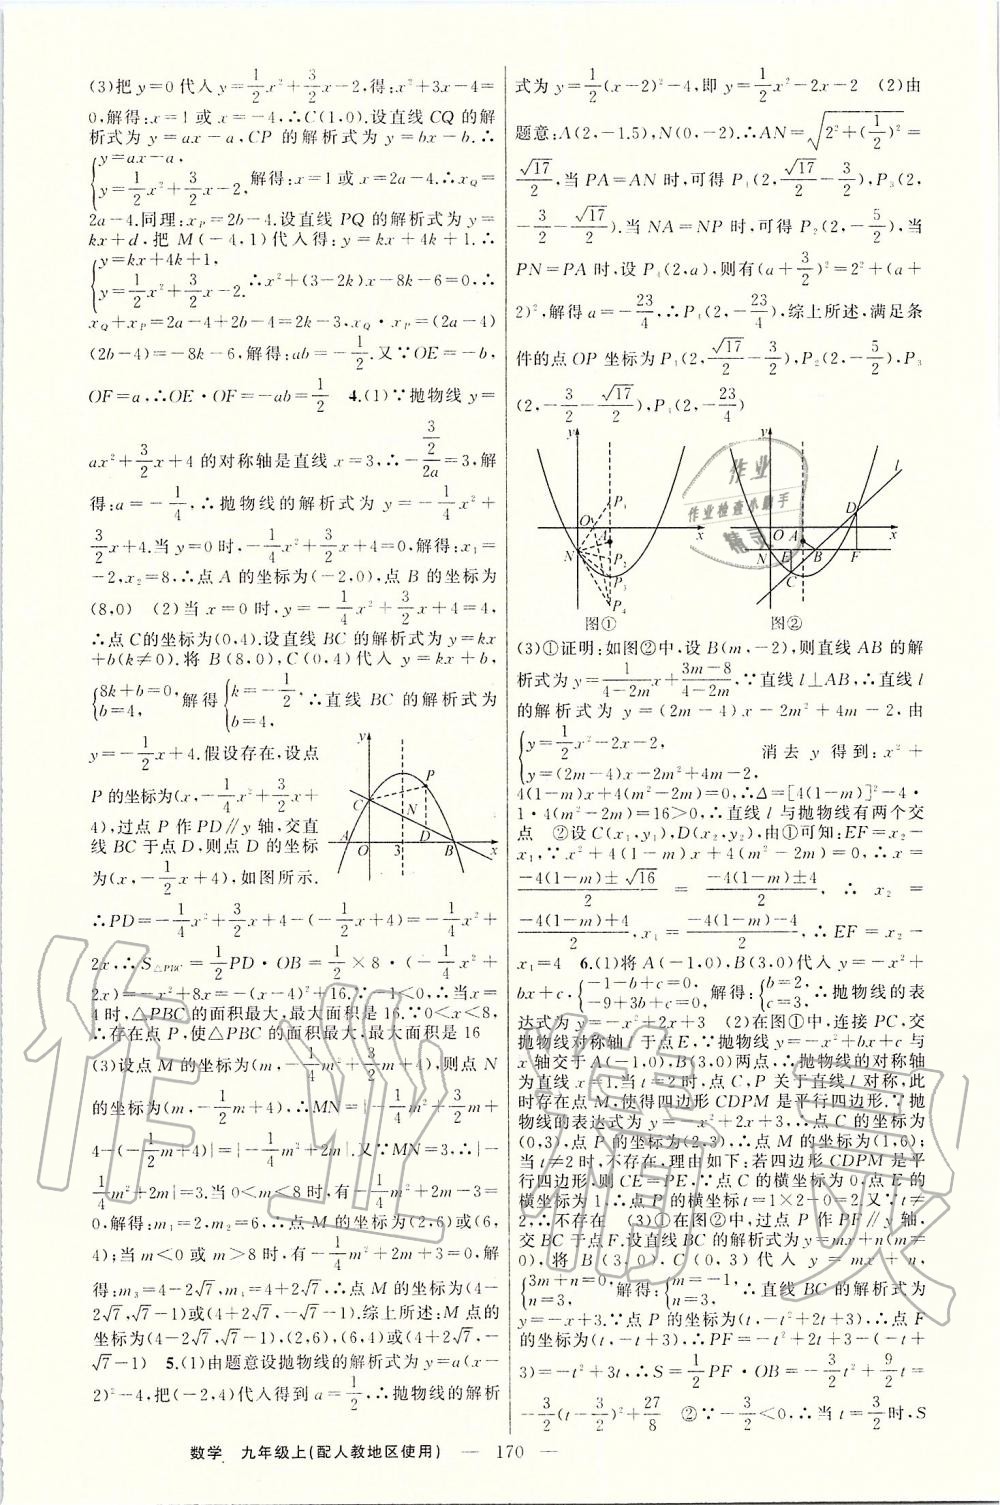 (3)把 y=0 代入 y=1/2x²+3/2x-2,得:x²+3x-4=
0,解得:x=1 或 x=-4,∴C(1,0).设直线 CQ 的解
析式为 y=ax-a,CP 的解析式为 y=bx-b.∴
{y=ax-a,
y=1/2x²+3/2x-2, 解得:x=1 或 x=2a-4.∴x_Q=
2a-4.同理:x_P=2b-4.设直线 PQ 的解析式为 y=
kx+d,把 M(-4,1)代入得:y=kx+4k+1.∴
{y=kx+4k+1,
y=1/2x²+3/2x-2. ∴x²+(3-2k)x-8k-6=0,∴
x_Q+x_P=2a-4+2b-4=2k-3,x_Q·x_P=(2a-4)
(2b-4)=-8k-6,解得:ab=-1/2.又∵OE=-b,
OF=a,∴OE·OF=-ab=1/2 4.(1)∵抛物线 y=
ax²+3/2x+4 的对称轴是直线 x=3,∴-(3/2)/(2a)=3,解
得:a=-1/4,∴抛物线的解析式为 y=-1/4x²+
3/2x+4.当 y=0 时,-1/4x²+3/2x+4=0,解得:x₁=
-2,x₂=8,∴点 A 的坐标为(-2,0),点 B 的坐标为
(8,0) (2)当 x=0 时,y=-1/4x²+3/2x+4=4,
∴点C的坐标为(0,4).设直线 BC 的解析式为 y=kx
+b(k≠0).将 B(8,0),C(0,4)代入 y=kx+b,
{8k+b=0, b=4, 解得{k=-1/2, b=4, ∴直线 BC 的解析式为
y=-1/2x+4.假设存在,设点
P 的坐标为(x,-1/4x²+3/2x+
4),过点 P 作 PD∥y 轴,交直
线 BC 于点 D,则点 D 的坐标
为(x,-1/2x+4),如图所示.
y C P N A O 3 D B x
∴PD=-1/4x²+3/2x+4-(-1/2x+4)=-1/4x²+
2x,∴S△PBC=1/2PD·OB=1/2×8·(-1/4x²+
2x)=-x²+8x=-(x-4)²+16.∵-1<0,∴当x=
4 时,△PBC 的面积最大,最大面积是 16.∵0<x<8,
∴存在点 P,使△PBC 的面积最大,最大面积是 16
(3)设点 M 的坐标为(m,-1/4m²+3/2m+4),则点 N
的坐标为(m,-1/2m+4),∴MN=|-1/4m²+3/2m+
4-(-1/2m+4)|=|-1/4m²+2m|.又∵MN=3,∴|-
1/4m²+2m|=3.当 0<m<8 时,有-1/4m²+2m-3=
0,解得:m₁=2,m₂=6,∴点 M 的坐标为(2,6)或(6,
4);当 m<0 或 m>8 时,有-1/4m²+2m+3=0,解
得:m₃=4-2√7,m₄=4+2√7,∴点 M 的坐标为(4-
2√7,√7-1)或(4+2√7,-√7-1).综上所述:M 点的
坐标为(4-2√7,√7-1),(2,6),(6,4)或(4+2√7,-
√7-1) 5.(1)由题意设抛物线的解析式为 y=a(x-
2)²-4,把(-2,4)代入得到 a=1/2,∴抛物线的解析
式为 y=1/2(x-2)²-4,即 y=1/2x²-2x-2 (2)由
题意:A(2,-1.5),N(0,-2).∴AN=√(2²+(1/2)²)=
√17/2,当 PA=AN 时,可得 P₁(2,√17/2-3/2),P₃(2,
-3/2-√17/2).当 NA=NP 时,可得 P₂(2,-5/2),当
PN=PA 时,设 P₄(2,a),则有(a+3/2)²=2²+(a+
2)²,解得 a=-23/4,∴P₄(2,-23/4),综上所述,满足条
件的点 OP 坐标为 P₁(2,√17/2-3/2),P₂(2,-5/2).P₃
(2,-3/2-√17/2),P₄(2,-23/4)
y P₁ O A x N P₂ P₃ P₄
图①
y l D O A x E B F C
图②
(3)①证明:如图②中,设 B(m,-2),则直线 AB 的解
析式为 y=1/(4-2m)x+(3m-8)/(4-2m),∵直线 l⊥AB,∴直线 l
的解析式为 y=(2m-4)x-2m²+4m-2,由
{y=1/2x²-2x-2,
y=(2m-4)x-2m²+4m-2, 消去 y 得到:x²+
4(1-m)x+4(m²-2m)=0,∴Δ=[4(1-m)]²-4·
1·4(m²-2m)=16>0,∴直线 l 与抛物线有两个交
点 ②设 C(x₁,y₁),D(x₂,y₂),由①可知:EF=x₂-
x₁,∵x²+4(1-m)x+4(m²-2m)=0,∴x=
(-4(1-m)±√16)/2=(-4(1-m)±4)/2,∴x₂=
(-4(1-m)+4)/2,x₁=(-4(1-m)-4)/2,∴EF=x₂-
x₁=4 6.(1)将 A(-1,0),B(3,0)代入 y=-x²+
bx+c,{-1-b+c=0, -9+3b+c=0, 解得:{b=2, c=3, ∴抛物线的表
达式为 y=-x²+2x+3 (2)在图①中,连接 PC,交
抛物线对称轴 l 于点 E,∵抛物线 y=-x²+bx+c 与
x 轴交于 A(-1,0),B(3,0)两点,∴抛物线的对称轴
为直线 x=1.当 t=2 时,点 C,P 关于直线 l 对称,此
时存在点 M,使得四边形 CDPM 是平行四边形.∵抛
物线的表达式为 y=-x²+2x+3,∴点 C 的坐标为
(0,3),点 P 的坐标为(2,3),∴点 M 的坐标为(1,6);
当 t≠2 时,不存在,理由如下:若四边形 CDPM 是平
行四边形,则 CE=PE,∵点 C 的横坐标为 0,点 E 的
横坐标为 1,∴点 P 的横坐标 t=1×2-0=2.又∵t≠
2,∴不存在 (3)①在图②中,过点 P 作 PF∥y 轴,
交 BC 于点 F.设直线 BC 的解析式为 y=mx+n(m≠
0),将 B(3,0),C(0,3)代入 y=mx+n,
{3m+n=0, n=3, 解得:{m=-1, n=3, ∴直线 BC 的解析式为
y=-x+3.∵点 P 的坐标为(t,-t²+2t+3),∴点 F
的坐标为(t,-t+3),∴PF=-t²+2t+3-(-t+
3)=-t²+3t,∴S=1/2PF·OB=-3/2t²+9/2t=
-3/2(t-3/2)²+27/8 ②∵-3/2<0,∴当 t=3/2时,S
数学 九年级上(配人教地区使用) — 170 —
作业
作业检查小助手
精灵
作业精灵